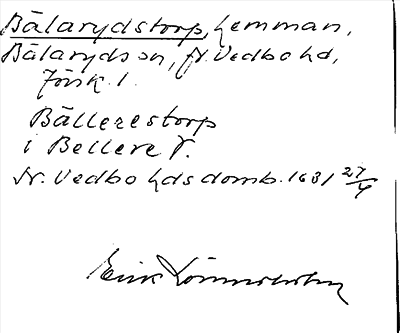 Bälarydstorp, hemman,
Bälaryds sn, N. Vedbo hd,
Jönk. l.
Bällerestorp
i Bellere
N. Vedbo hds domb. 1631 27/4
Erik